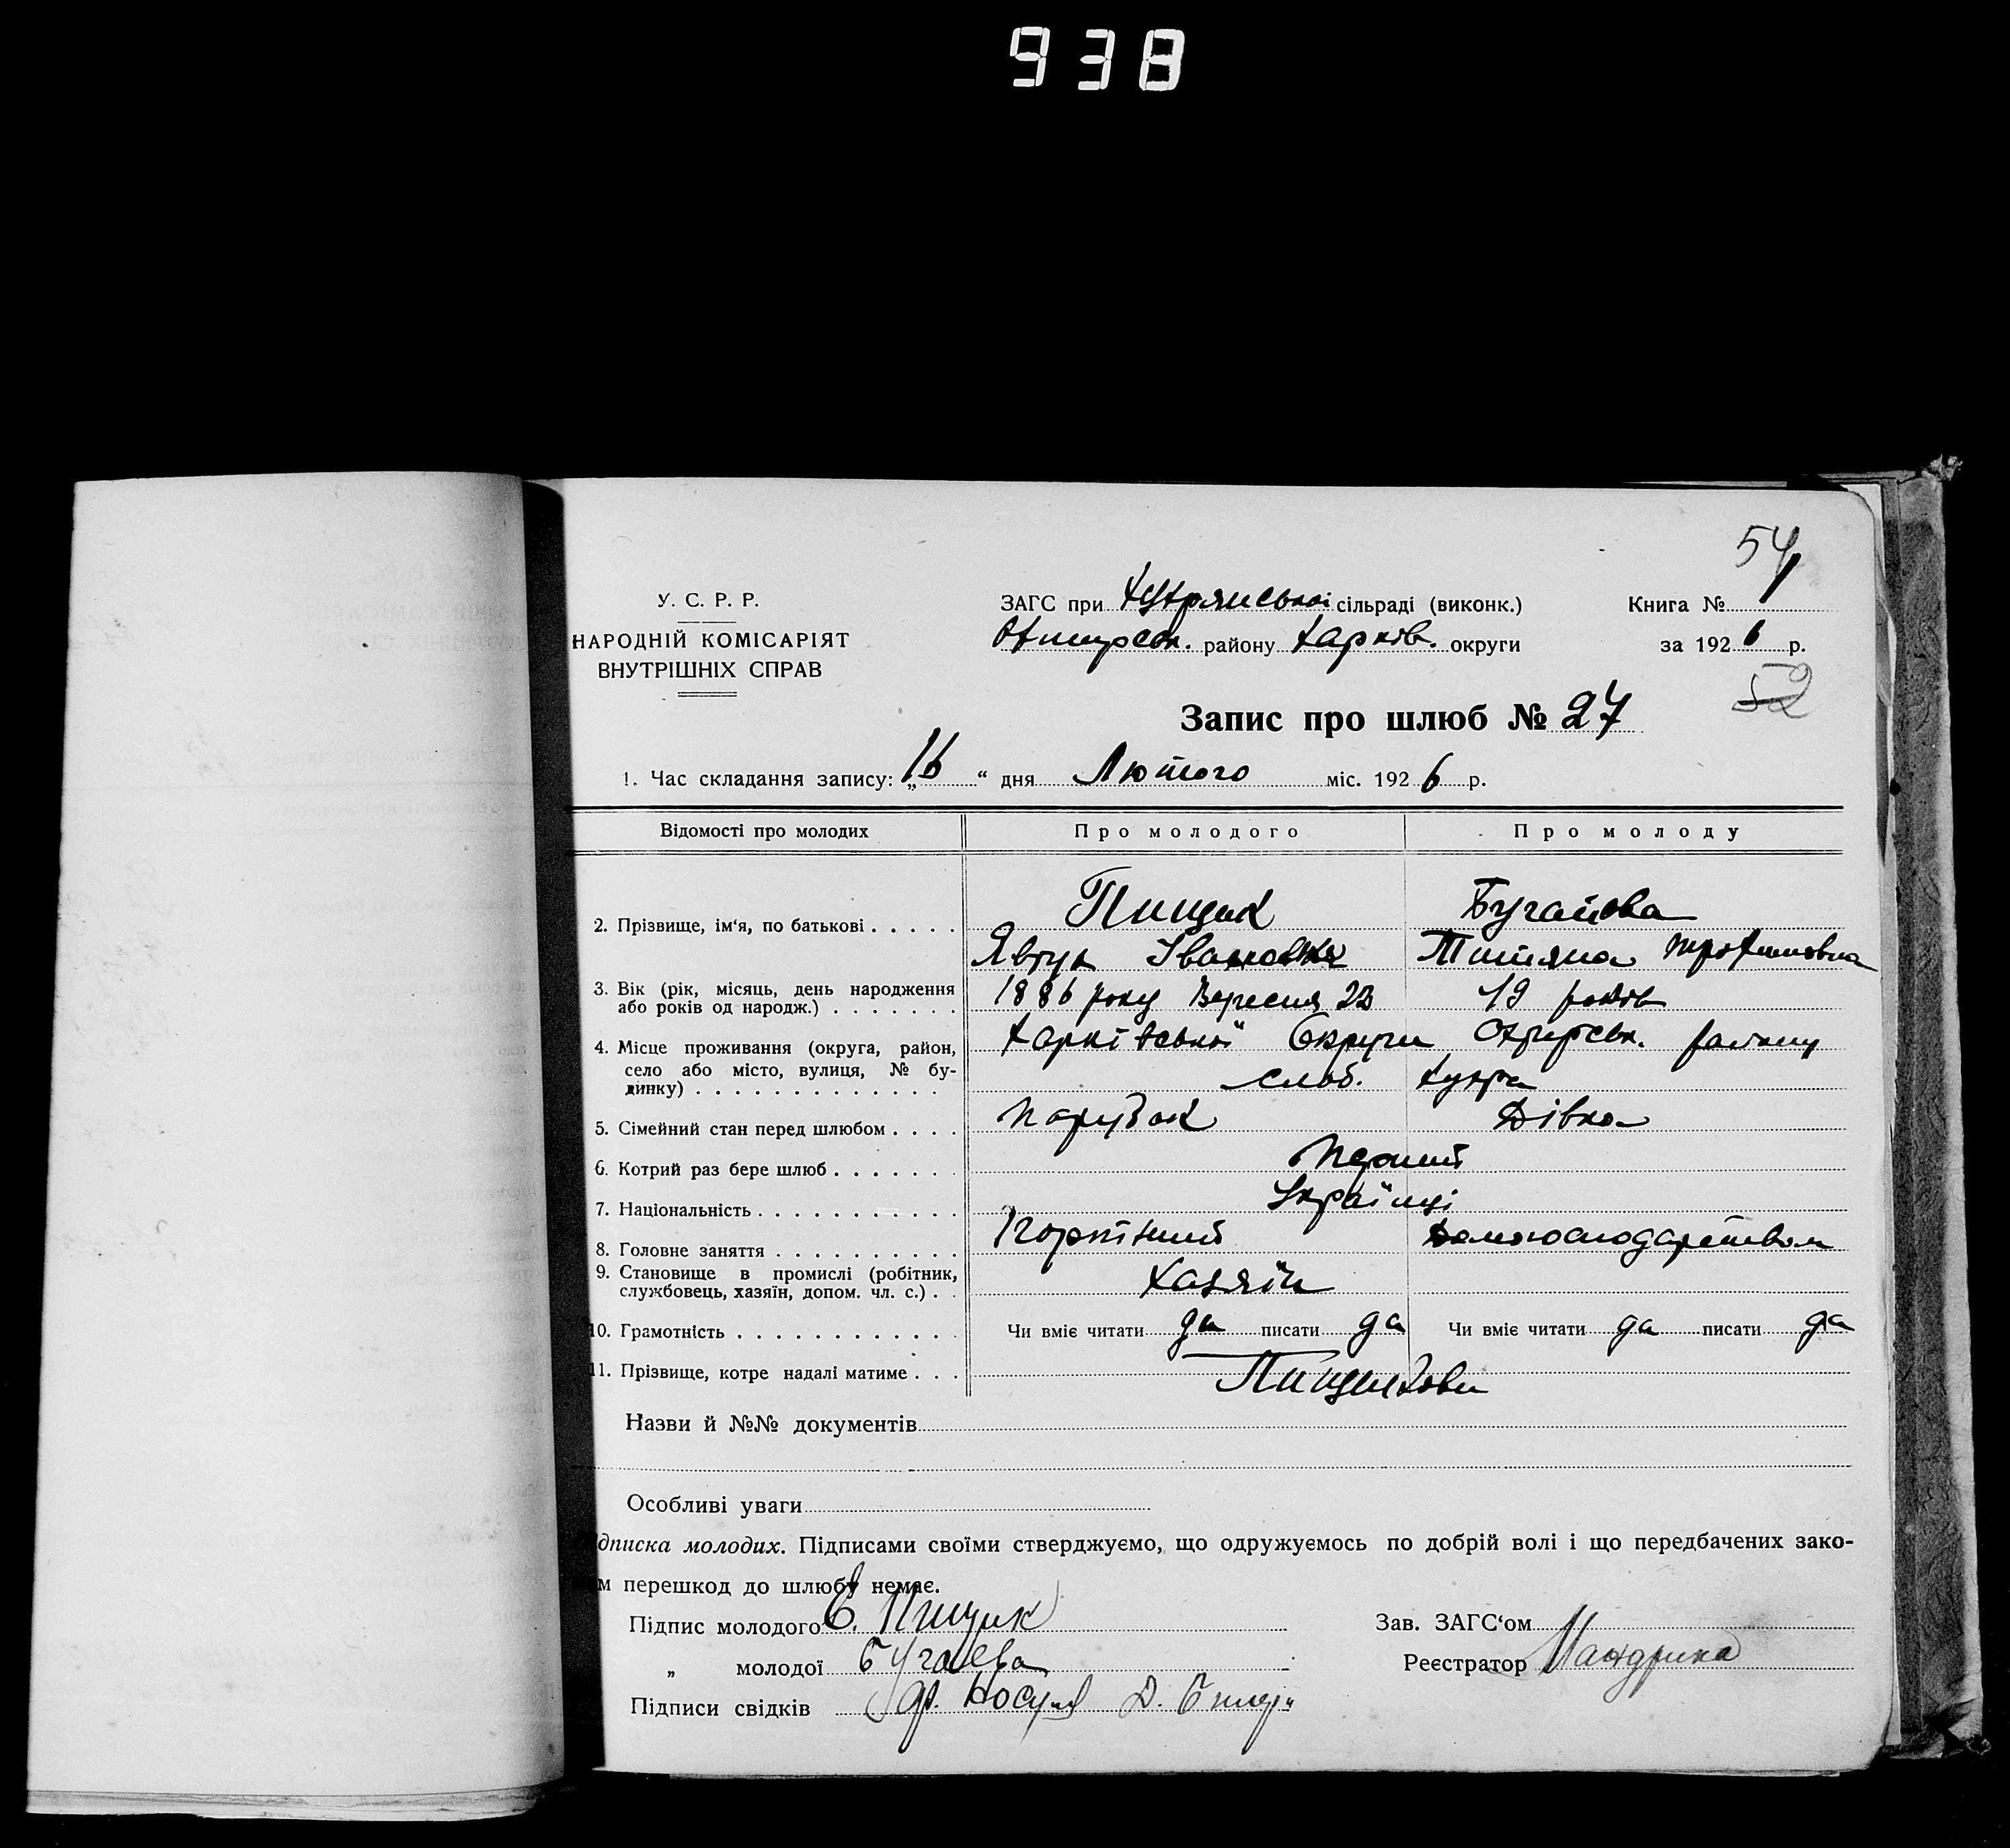 938
54
У. С. Р. Р.
НАРОДНІЙ КОМІСАРІЯТ
ВНУТРІШНІХ СПРАВ
ЗАГС при Хухрянської сільраді (виконк.)
Охтирськ. району Харків. округи
Книга № 1
за 1926 р.
52
Запис про шлюб № 27
1. Час складання запису: „16“ дня Лютого міс. 1926 р.
Відомості про молодих Про молодого Про молоду
2. Прізвище, ім‘я, по батькові Пищик Бугайова
Явтух Іванович Титяна Трофимовна
3. Вік (рік, місяць, день народження 1886 року Вересня 23 19 років
або років од народж.)
4. Місце проживання (округа, район, Харківської Округи Охтирськ. району
село або місто, вулиця, № бу- слоб. Хухра
динку)
5. Сімейний стан перед шлюбом Парубок Дівка
6. Котрий раз бере шлюб Перший
7. Національність Українці
8. Головне заняття Домогосподарством
9. Становище в промислі (робітник, Хазяїн
службовець, хазяїн, допом. чл. с.)
10. Грамотність Чи вміє читати да писати да Чи вміє читати да писати да
11. Прізвище, котре надалі матиме Пищикови
Назви й №№ документів
Особливі уваги
дписка молодих. Підписами своїми стверджуємо, що одружуємось по добрій волі і що передбачених зако-
м перешкод до шлюбу немає.
Підпис молодого Є. Пищик
„ молодої Бугаева
Підписи свідків
Зав. ЗАГС‘ом
Реєстратор Мандрика